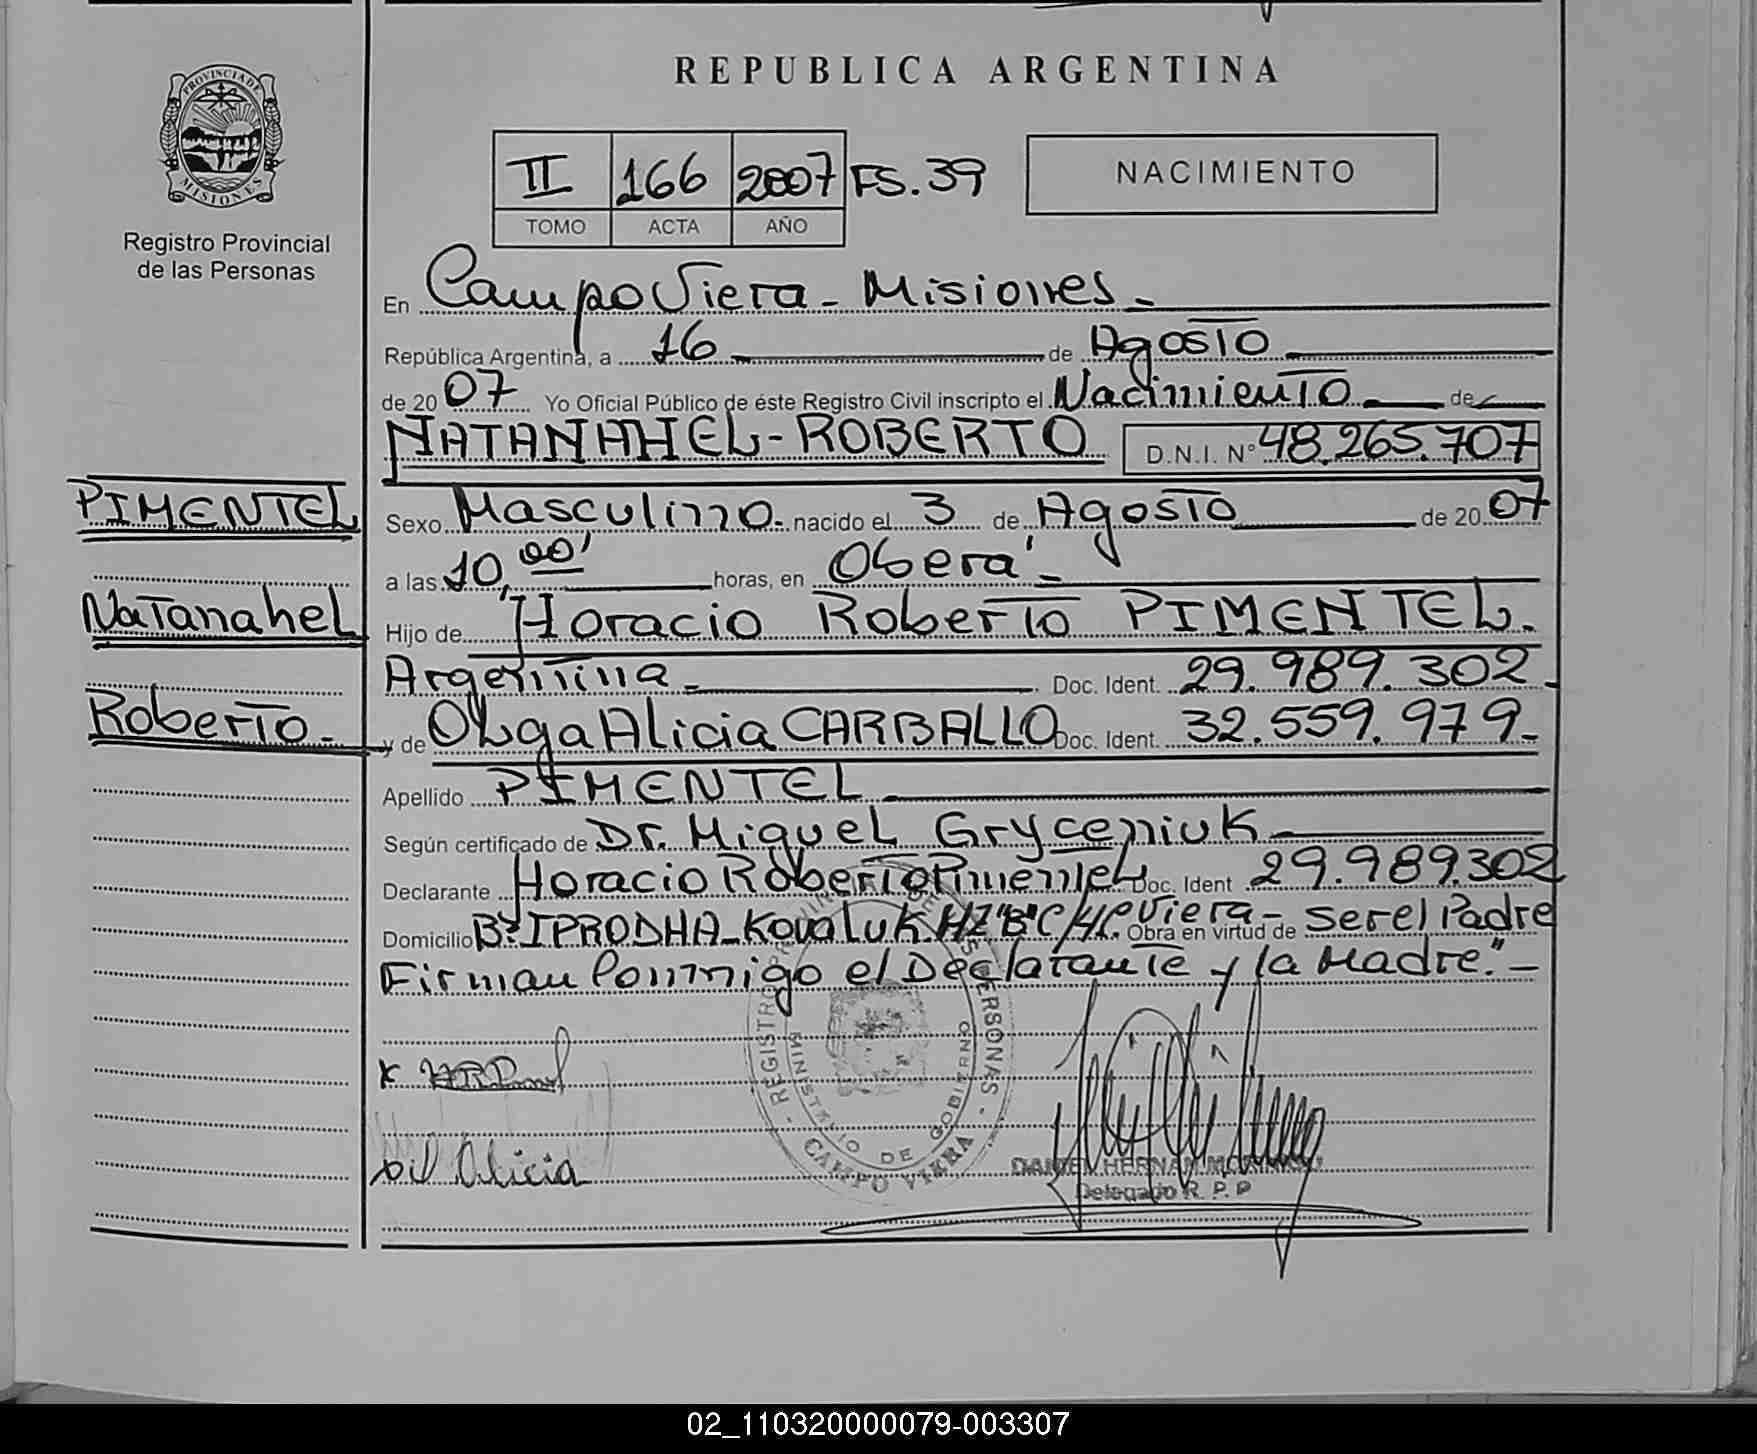 REPUBLICA ARGENTINA
PROVINCIA DE MISIONES
Registro Provincial
de las Personas
II 166 2007 FS. 39
TOMO ACTA AÑO
NACIMIENTO
En Campo Viera - Misiones -
República Argentina, a 16 de Agosto
de 20 07 Yo Oficial Público de éste Registro Civil inscripto el Nacimiento de
NATANAHEL - ROBERTO D.N.I. Nº 48.265.707
PIMENTEL
Natanahel
Roberto -
Sexo Masculino - nacido el 3 de Agosto de 20 07
a las 10,00' horas, en Oberá -
Hijo de Horacio Roberto PIMENTEL.
Argentina - Doc. Ident. 29.989.302 -
y de OLga Alicia CARBALLO Doc. Ident. 32.559.979 -
Apellido PIMENTEL
Según certificado de Dr. Miguel Gryceniuk
Declarante Horacio Roberto Pimentel Doc. Ident 29.989.302
Domicilio Bº IPRODHA - Kovaluk Viera - Obra en virtud de ser el Padre
Firman Conmigo el Declarante y la Madre." -
REGISTRO PERSONAS
MINISTERIO DE GOBIERNO
CAMPO VIERA
x
Alicia
DANIEL HERNAN
Delegado R. P. P
02_110320000079-003307